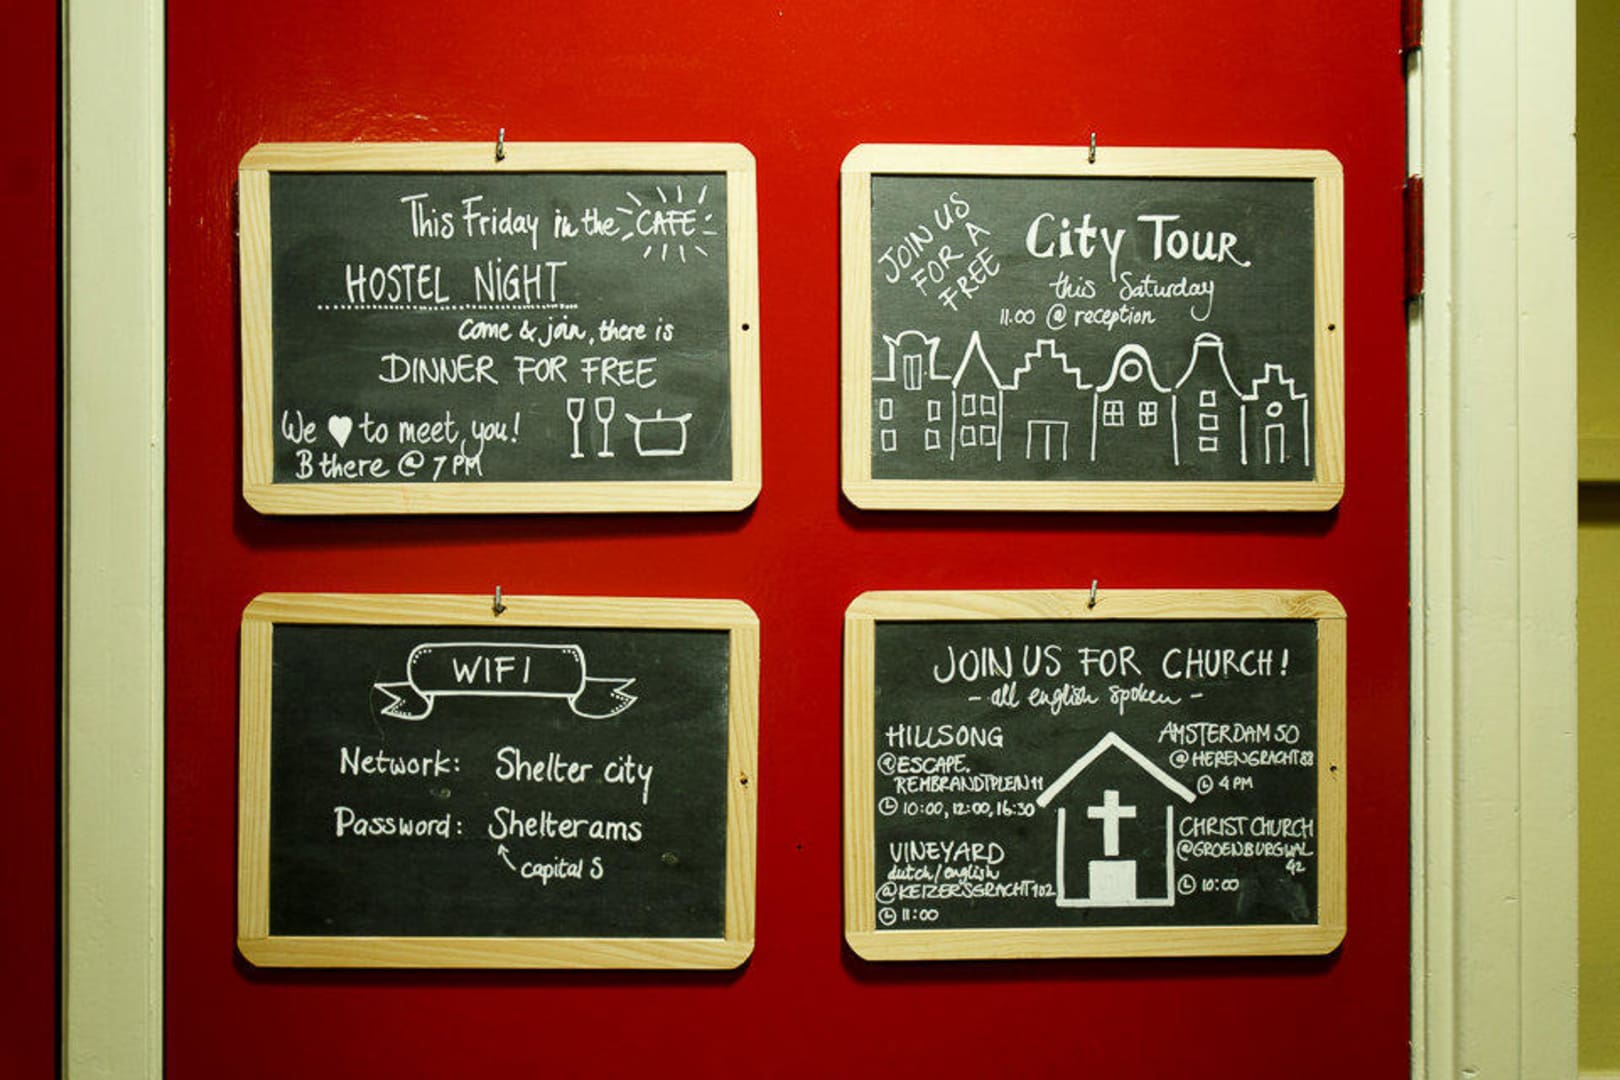 This Friday in the CAFE
HOSTEL NiGHT
come & join, there is
DINNER FOR FREE
We ♥ to meet you!
B there @ 7 PM
JOIN US
FOR A
FREE
City Tour
this Saturday
11.00 @ reception
WIFI
Network: Shelter city
Password: Shelterams
capital S
JOIN US FOR CHURCH!
- all english spoken -
HILLSONG
@ESCAPE.
REMBRANDTPLEIN 11
10:00, 12:00, 16:30
VINEYARD
dutch/english
@KEIZERSGRACHT 102
11:00
AMSTERDAM 50
@HERENGRACHT 88
4 PM
CHRIST CHURCH
@GROENBURGWAL
42
10:00